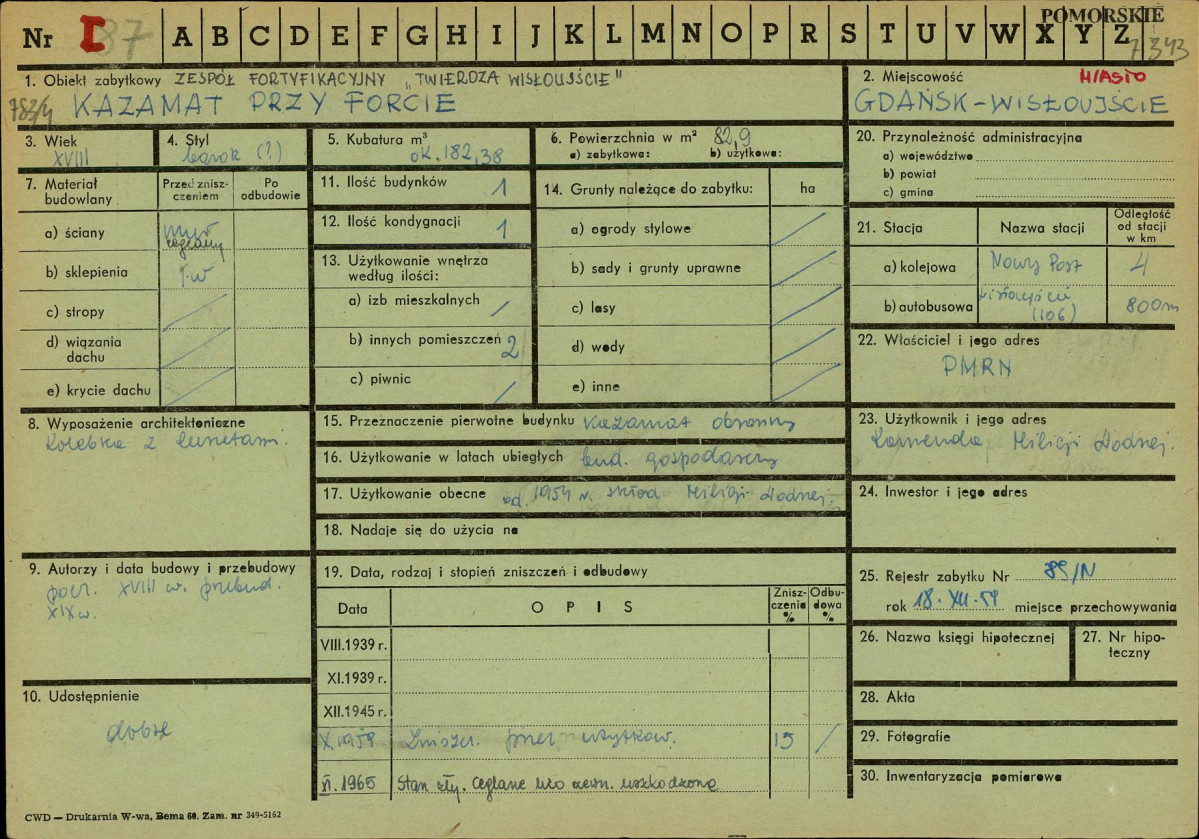 POMORSKIE
Nr I 87 A B C D E F G H I J K L M N O P R S T U V W X Y Z
7343
1. Obiekt zabytkowy ZESPÓŁ FORTYFIKACYJNY „TWIERDZA WISŁOUJŚCIE"
KAZAMAT PRZY FORCIE
2. Miejscowość MIASTO
GDAŃSK-WISŁOUJŚCIE
3. Wiek
XVIII
4. Styl
barok (?)
5. Kubatura m³
ok. 182,38
6. Powierzchnia w m² 82,9
a) zabytkowa: b) użytkowa:
7. Materiał budowlany
Przed znisz-
czeniem
Po
odbudowie
a) ściany mur
ceglany
b) sklepienia j.w
c) stropy
d) wiązania
dachu
e) krycie dachu
8. Wyposażenie architektoniczne
Kolebka z lunetami.
9. Autorzy i data budowy i przebudowy
pocz. XVIII w. przebud.
XIX w.
10. Udostępnienie
dobre
11. Ilość budynków 1
12. Ilość kondygnacji 1
13. Użytkowanie wnętrza
według ilości:
a) izb mieszkalnych /
b) innych pomieszczeń 2
c) piwnic /
14. Grunty należące do zabytku: ha
a) ogrody stylowe
b) sady i grunty uprawne
c) lasy
d) wody
e) inne
15. Przeznaczenie pierwotne budynku Kazamat obronny
16. Użytkowanie w latach ubiegłych bud. gospodarczy
17. Użytkowanie obecne od 1954 r. skład Milicji Wodnej.
18. Nadaje się do użycia na
19. Data, rodzaj i stopień zniszczeń i odbudowy
Data O P I S Znisz-
czenia
% Odbu-
dowa
%
VIII.1939 r.
XI.1939 r.
XII.1945 r.
X.1959 Zniszcz. przez użytkow. 15 /
XI.1965 Stan zły. Ceglane lico zewn. uszkodzone
20. Przynależność administracyjna
a) województwo
b) powiat
c) gmina
21. Stacja Nazwa stacji Odległość
od stacji
w km
a) kolejowa Nowy Port 4
b) autobusowa Wisłoujście
(106) 800m
22. Właściciel i jego adres
PMRN
23. Użytkownik i jego adres
Komenda Milicji Wodnej.
24. Inwestor i jego adres
25. Rejestr zabytku Nr 89/N
rok 18.XII.59 miejsce przechowywania
26. Nazwa księgi hipotecznej
27. Nr hipo-
teczny
28. Akta
29. Fotografie
30. Inwentaryzacja pomiarowa
CWD — Drukarnia W-wa, Bema 60. Zam. nr 349-5162